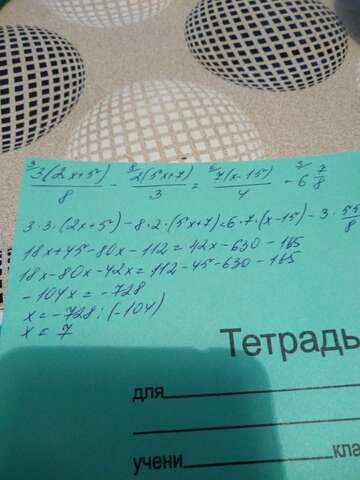 ³3(2x+5)/8 - ⁸2(5x+7)/3 = ⁶7(x-15)/4 - 6 7/8
3·3·(2x+5)-8·2·(5x+7)=6·7·(x-15)-3·55/8
18x+45-80x-112=42x-630-165
18x-80x-42x=112-45-630-165
-104x=-728
x=-728:(-104)
x=7
Тетрадь
для
учени
кла